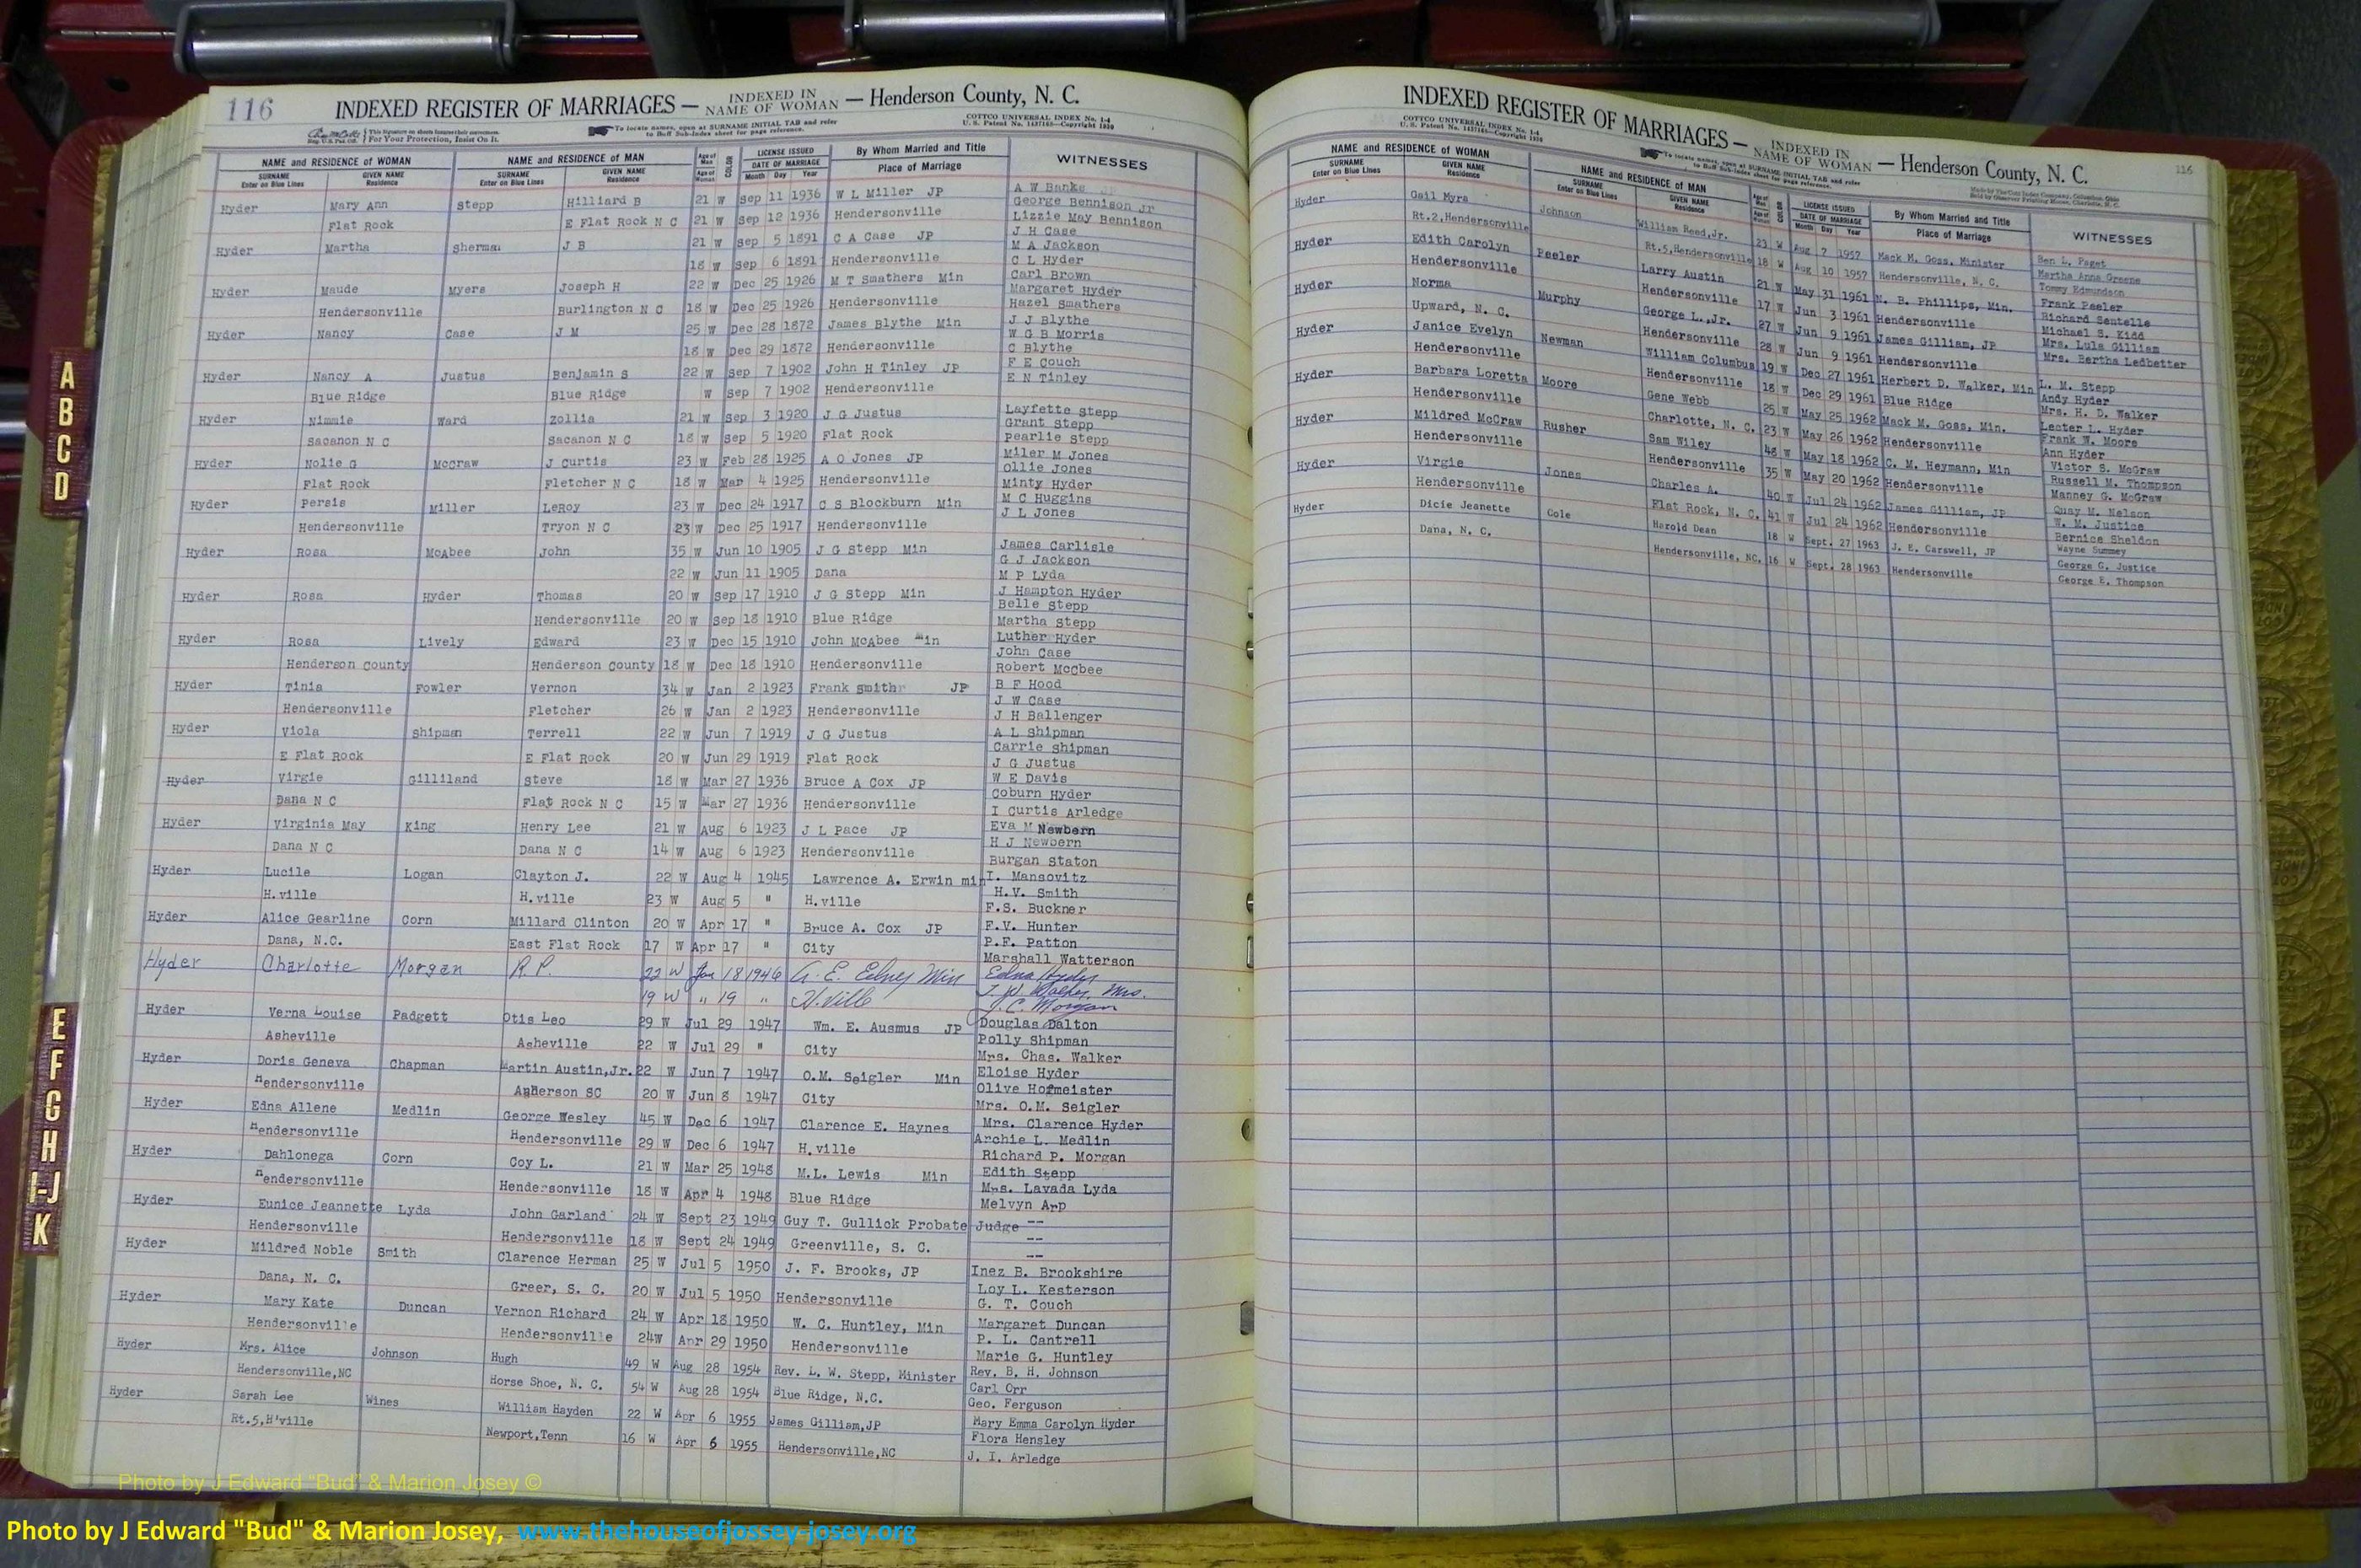 116 INDEXED REGISTER OF MARRIAGES — INDEXED IN NAME OF WOMAN — Henderson County, N. C.
This Signature on sheets foremost their correctness. For Your Protection, Insist On It.
To locate names, open at SURNAME INITIAL TAB and refer to Buff Sub-Index sheet for page reference.
COTTCO UNIVERSAL INDEX No. 1-4
U. S. Patent No. 1437165—Copyright 1930
NAME and RESIDENCE of WOMAN NAME and RESIDENCE of MAN Age of Man COLOR LICENSE ISSUED By Whom Married and Title WITNESSES
SURNAME Enter on Blue Lines GIVEN NAME Residence SURNAME Enter on Blue Lines GIVEN NAME Residence Age of Woman DATE OF MARRIAGE Month Day Year Place of Marriage
Hyder Mary Ann Stepp Hilliard B 21 W Sep 11 1936 W L Miller JP A W Banks
George Bennison Jr
Flat Rock E Flat Rock N C 21 W Sep 12 1936 Hendersonville Lizzie May Bennison
Hyder Martha Sherman J B 21 W Sep 5 1891 C A Case JP J H Case
M A Jackson
18 W Sep 6 1891 Hendersonville C L Hyder
Hyder Maude Myers Joseph H 22 W Dec 25 1926 M T Smathers Min Carl Brown
Margaret Hyder
Hendersonville Burlington N C 18 W Dec 25 1926 Hendersonville Hazel Smathers
Hyder Nancy Case J M 25 W Dec 28 1872 James Blythe Min J J Blythe
W G B Morris
18 W Dec 29 1872 Hendersonville C Blythe
Hyder Nancy A Justus Benjamin S 22 W Sep 7 1902 John H Tinley JP F E Couch
E N Tinley
Blue Ridge Blue Ridge W Sep 7 1902 Hendersonville
Hyder Nimmie Ward Zollia 21 W Sep 3 1920 J G Justus Layfette Stepp
Grant Stepp
Sacanon N C Sacanon N C 18 W Sep 5 1920 Flat Rock Pearlie Stepp
Hyder Nolie G McCraw J Curtis 23 W Feb 28 1925 A O Jones JP Miler M Jones
Ollie Jones
Flat Rock Fletcher N C 18 W Mar 4 1925 Hendersonville Minty Hyder
Hyder Persis Miller LeRoy 23 W Dec 24 1917 C S Blockburn Min M C Huggins
J L Jones
Hendersonville Tryon N C 23 W Dec 25 1917 Hendersonville
Hyder Rosa McAbee John 35 W Jun 10 1905 J G Stepp Min James Carlisle
G J Jackson
22 W Jun 11 1905 Dana M P Lyda
Hyder Rosa Hyder Thomas 20 W Sep 17 1910 J G Stepp Min J Hampton Hyder
Belle Stepp
Hendersonville 20 W Sep 18 1910 Blue Ridge Martha Stepp
Hyder Rosa Lively Edward 23 W Dec 15 1910 John McAbee Min Luther Hyder
John Case
Henderson County Henderson County 18 W Dec 18 1910 Hendersonville Robert McCbee
Hyder Tinia Fowler Vernon 34 W Jan 2 1923 Frank Smith JP B F Hood
J W Case
Hendersonville Fletcher 26 W Jan 2 1923 Hendersonville J H Ballenger
Hyder Viola Shipman Terrell 22 W Jun 7 1919 J G Justus A L Shipman
Carrie Shipman
E Flat Rock E Flat Rock 20 W Jun 29 1919 Flat Rock J G Justus
Hyder Virgie Gilliland Steve 18 W Mar 27 1936 Bruce A Cox JP W E Davis
Coburn Hyder
Dana N C Flat Rock N C 15 W Mar 27 1936 Hendersonville I Curtis Arledge
Hyder Virginia May King Henry Lee 21 W Aug 6 1923 J L Pace JP Eva M Newbern
H J Newbern
Dana N C Dana N C 14 W Aug 6 1923 Hendersonville Burgan Staton
Hyder Lucile Logan Clayton J. 22 W Aug 4 1945 Lawrence A. Erwin min I. Mansovitz
H.V. Smith
H.ville H.ville 23 W Aug 5 " H.ville F.S. Buckner
Hyder Alice Gearline Corn Millard Clinton 20 W Apr 17 " Bruce A. Cox JP F.V. Hunter
P.F. Patton
Dana, N.C. East Flat Rock 17 W Apr 17 " City Marshall Watterson
Hyder Charlotte Morgan R. P. 22 W Jan 18 1946 A. E. Edney Min Edna Hyder
19 W " 19 " H.ville Mrs.
J. C. Morgan
Hyder Verna Louise Padgett Otis Leo 29 W Jul 29 1947 Wm. E. Ausmus JP Douglas Dalton
Polly Shipman
Asheville Asheville 22 W Jul 29 " City Mrs. Chas. Walker
Hyder Doris Geneva Chapman Martin Austin,Jr. 22 W Jun 7 1947 O.M. Seigler Min Eloise Hyder
Olive Hofmeister
Hendersonville Anderson SC 20 W Jun 8 1947 City Mrs. O.M. Seigler
Hyder Edna Allene Medlin George Wesley 45 W Dec 6 1947 Clarence E. Haynes Mrs. Clarence Hyder
Archie L. Medlin
Hendersonville Hendersonville 29 W Dec 6 1947 H.ville Richard P. Morgan
Hyder Dahlonega Corn Coy L. 21 W Mar 25 1948 M.L. Lewis Min Edith Stepp
Mrs. Lavada Lyda
Hendersonville Hendersonville 18 W Apr 4 1948 Blue Ridge Melvyn Arp
Hyder Eunice Jeannette Lyda John Garland 24 W Sept 23 1949 Guy T. Gullick Probate Judge --
--
Hendersonville Hendersonville 18 W Sept 24 1949 Greenville, S. C. --
Hyder Mildred Noble Smith Clarence Herman 25 W Jul 5 1950 J. F. Brooks, JP Inez B. Brookshire
Loy L. Kesterson
Dana, N. C. Greer, S. C. 20 W Jul 5 1950 Hendersonville G. T. Couch
Hyder Mary Kate Duncan Vernon Richard 24 W Apr 18 1950 W. C. Huntley, Min Margaret Duncan
P. L. Cantrell
Hendersonville Hendersonville 24W Apr 29 1950 Hendersonville Marie G. Huntley
Hyder Mrs. Alice Johnson Hugh 49 W Aug 28 1954 Rev. L. W. Stepp, Minister Rev. B. H. Johnson
Carl Orr
Hendersonville,NC Horse Shoe, N. C. 54 W Aug 28 1954 Blue Ridge, N.C. Geo. Ferguson
Hyder Sarah Lee Wines William Hayden 22 W Apr 6 1955 James Gilliam,JP Mary Emma Carolyn Hyder
Flora Hensley
Rt.5,H'ville Newport,Tenn 16 W Apr 6 1955 Hendersonville,NC J. I. Arledge
INDEXED REGISTER OF MARRIAGES — INDEXED IN NAME OF WOMAN — Henderson County, N. C. 116
COTTCO UNIVERSAL INDEX No. 1-4
U. S. Patent No. 1437165—Copyright 1930
To locate names, open at SURNAME INITIAL TAB and refer to Buff Sub-Index sheet for page reference.
Made by The Cott Index Company, Columbus, Ohio
Sold by Observer Printing House, Charlotte, N. C.
NAME and RESIDENCE of WOMAN NAME and RESIDENCE of MAN Age of Man LICENSE ISSUED By Whom Married and Title WITNESSES
SURNAME Enter on Blue Lines GIVEN NAME Residence SURNAME Enter on Blue Lines GIVEN NAME Residence Age of Woman DATE OF MARRIAGE Month Day Year Place of Marriage
Hyder Gail Myra Johnson William Reed,Jr. 23 W Aug 7 1957 Mack M. Goss, Minister Ben L. Paget
Martha Anna Greene
Rt.2,Hendersonville Rt.5,Hendersonville 18 W Aug 10 1957 Hendersonville, N. C. Tommy Edmundson
Hyder Edith Carolyn Peeler Larry Austin 21 W May 31 1961 N. B. Phillips, Min. Frank Peeler
Richard Sentelle
Hendersonville Hendersonville 17 W Jun 3 1961 Hendersonville Michael S. Kidd
Hyder Norma Murphy George L.,Jr. 27 W Jun 9 1961 James Gilliam, JP Mrs. Lula Gilliam
Mrs. Bertha Ledbetter
Upward, N. C. Hendersonville 28 W Jun 9 1961 Hendersonville
Hyder Janice Evelyn Newman William Columbus 19 W Dec 27 1961 Herbert D. Walker, Min L. M. Stepp
Andy Hyder
Hendersonville Hendersonville 18 W Dec 29 1961 Blue Ridge Mrs. H. D. Walker
Hyder Barbara Loretta Moore Gene Webb 25 W May 25 1962 Mack M. Goss, Min. Lester L. Hyder
Frank W. Moore
Hendersonville Charlotte, N. C. 23 W May 26 1962 Hendersonville Ann Hyder
Hyder Mildred McCraw Rusher Sam Wiley 48 W May 18 1962 C. M. Heymann, Min Victor S. McGraw
Russell M. Thompson
Hendersonville Hendersonville 35 W May 20 1962 Hendersonville Manney G. McGraw
Hyder Virgie Jones Charles A. 40 W Jul 24 1962 James Gilliam, JP Quay M. Nelson
W. M. Justice
Hendersonville Flat Rock, N. C. 41 W Jul 24 1962 Hendersonville Bernice Sheldon
Hyder Dicie Jeanette Cole Harold Dean 18 W Sept. 27 1963 J. E. Carswell, JP Wayne Summey
George G. Justice
Dana, N. C. Hendersonville, NC. 16 W Sept. 28 1963 Hendersonville George E. Thompson
A
B
C
D
E
F
G
H
I-J
K
Photo by J Edward "Bud" & Marion Josey ©
Photo by J Edward "Bud" & Marion Josey, www.thehouseofjossey-josey.org